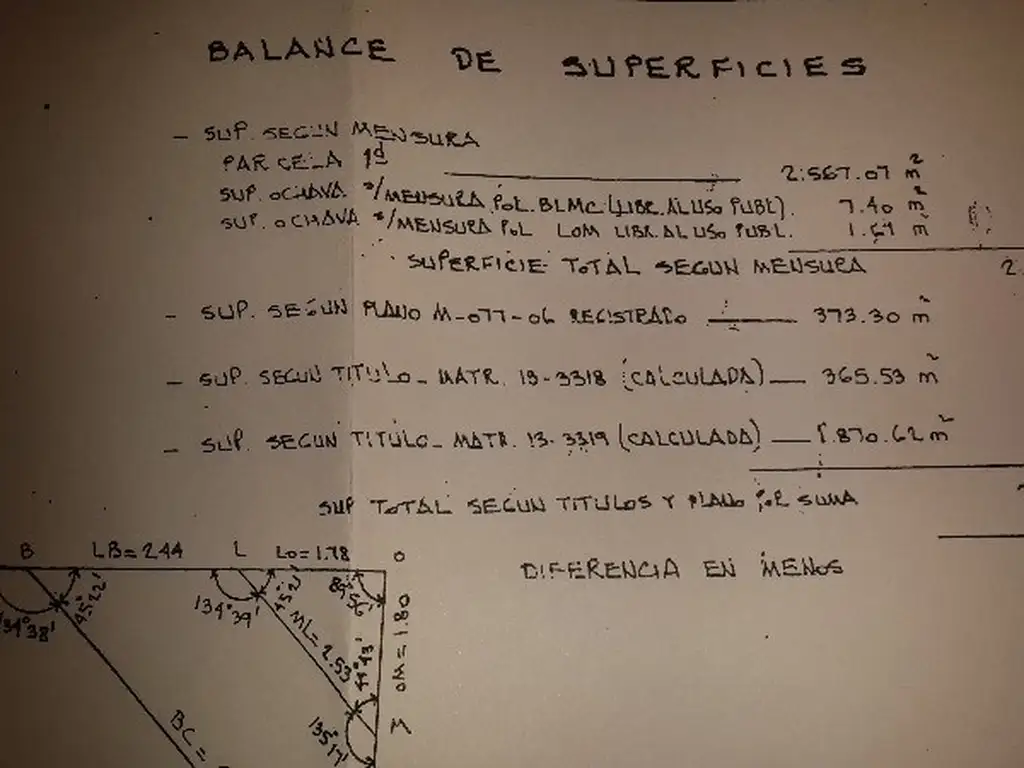 BALANCE DE SUPERFICIES
- SUP. SEGUN MENSURA
PARCELA 1d 2.567.07 m²
SUP. OCHAVA s/MENSURA POL. BLMC (LIBR. AL USO PUBL). 7.40 m²
SUP. OCHAVA s/MENSURA POL LOM LIBR. AL USO PUBL. m²
SUPERFICIE TOTAL SEGUN MENSURA 2.
- SUP. SEGUN PLANO M-077-06 REGISTRADO 373.30 m²
- SUP. SEGUN TITULO - MATR. 13-3318 (CALCULADA) 365.53 m²
- SUP. SEGUN TITULO - MATR. 13-3319 (CALCULADA) 1.870.62 m²
SUP TOTAL SEGUN TITULOS Y PLANO POR SUMA
DIFERENCIA EN MENOS
B LB=2.44 L LO=1.78 O
134°38' 45°22' 134°39' 45°21' 89°56'
ML=2.53 44°43' OM=1.80
BC= 135°17' M